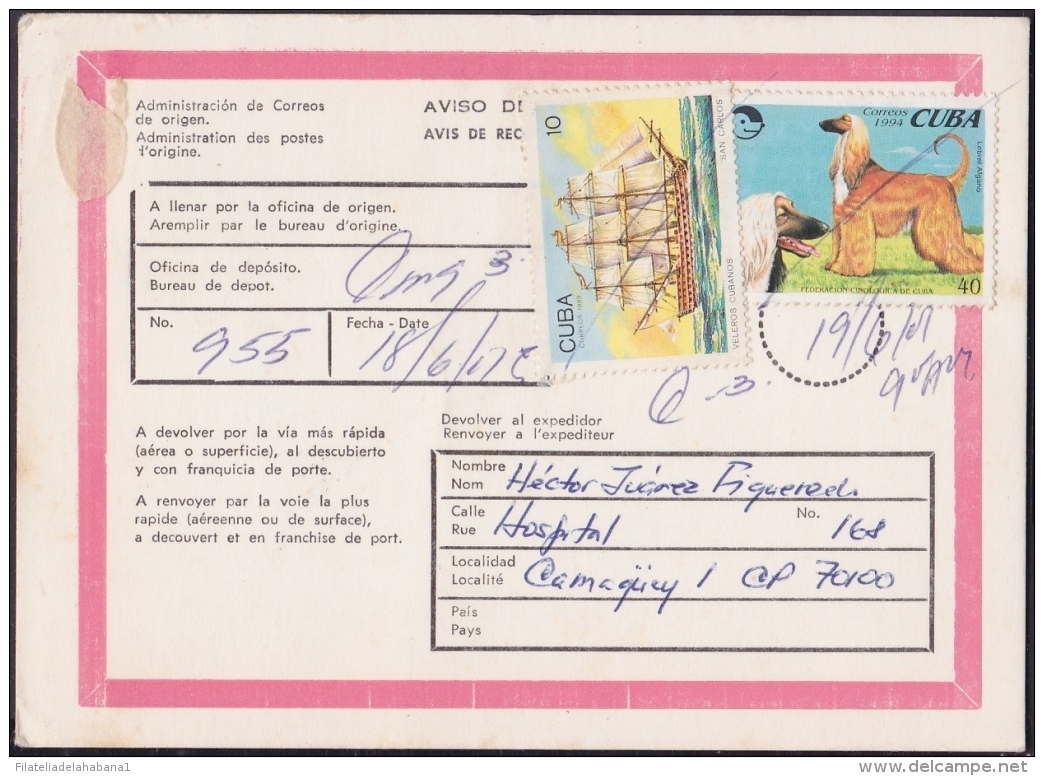 Administración de Correos
de origen.
Administration des postes
d'origine.
AVISO DE
AVIS DE REC
A llenar por la oficina de origen.
Aremplir par le bureau d'origine.
Oficina de depósito.
Bureau de depot.
3
No.
955
Fecha - Date
18/6/
10
CUBA
CORREOS 1989
SAN CARLOS
VELEROS CUBANOS
Correos
1994 CUBA
Lebrel Afgano
FEDERACION CINOLOGICA DE CUBA
40
19/6/01
3
Devolver al expedidor
Renvoyer a l'expediteur
A devolver por la vía más rápida
(aérea o superficie), al descubierto
y con franquicia de porte.
A renvoyer par la voie la plus
rapide (aéreenne ou de surface),
a decouvert et en franchise de port.
Nombre
Nom Héctor Juárez Figueredo
Calle No.
Rue Hospital 168
Localidad
Localité Camagüey 1 CP 70100
País
Pays
Filateliadelahabana1
delcampe.net